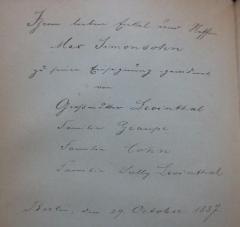 Ihrem lieben Enkel und Neffen
Max Simonsohn
zu seiner Einsegnung gewidmet
von
Großmutter Levinthal
Familie
Familie Cohn
Familie Sally Levinthal
Berlin, den 29. October 1887